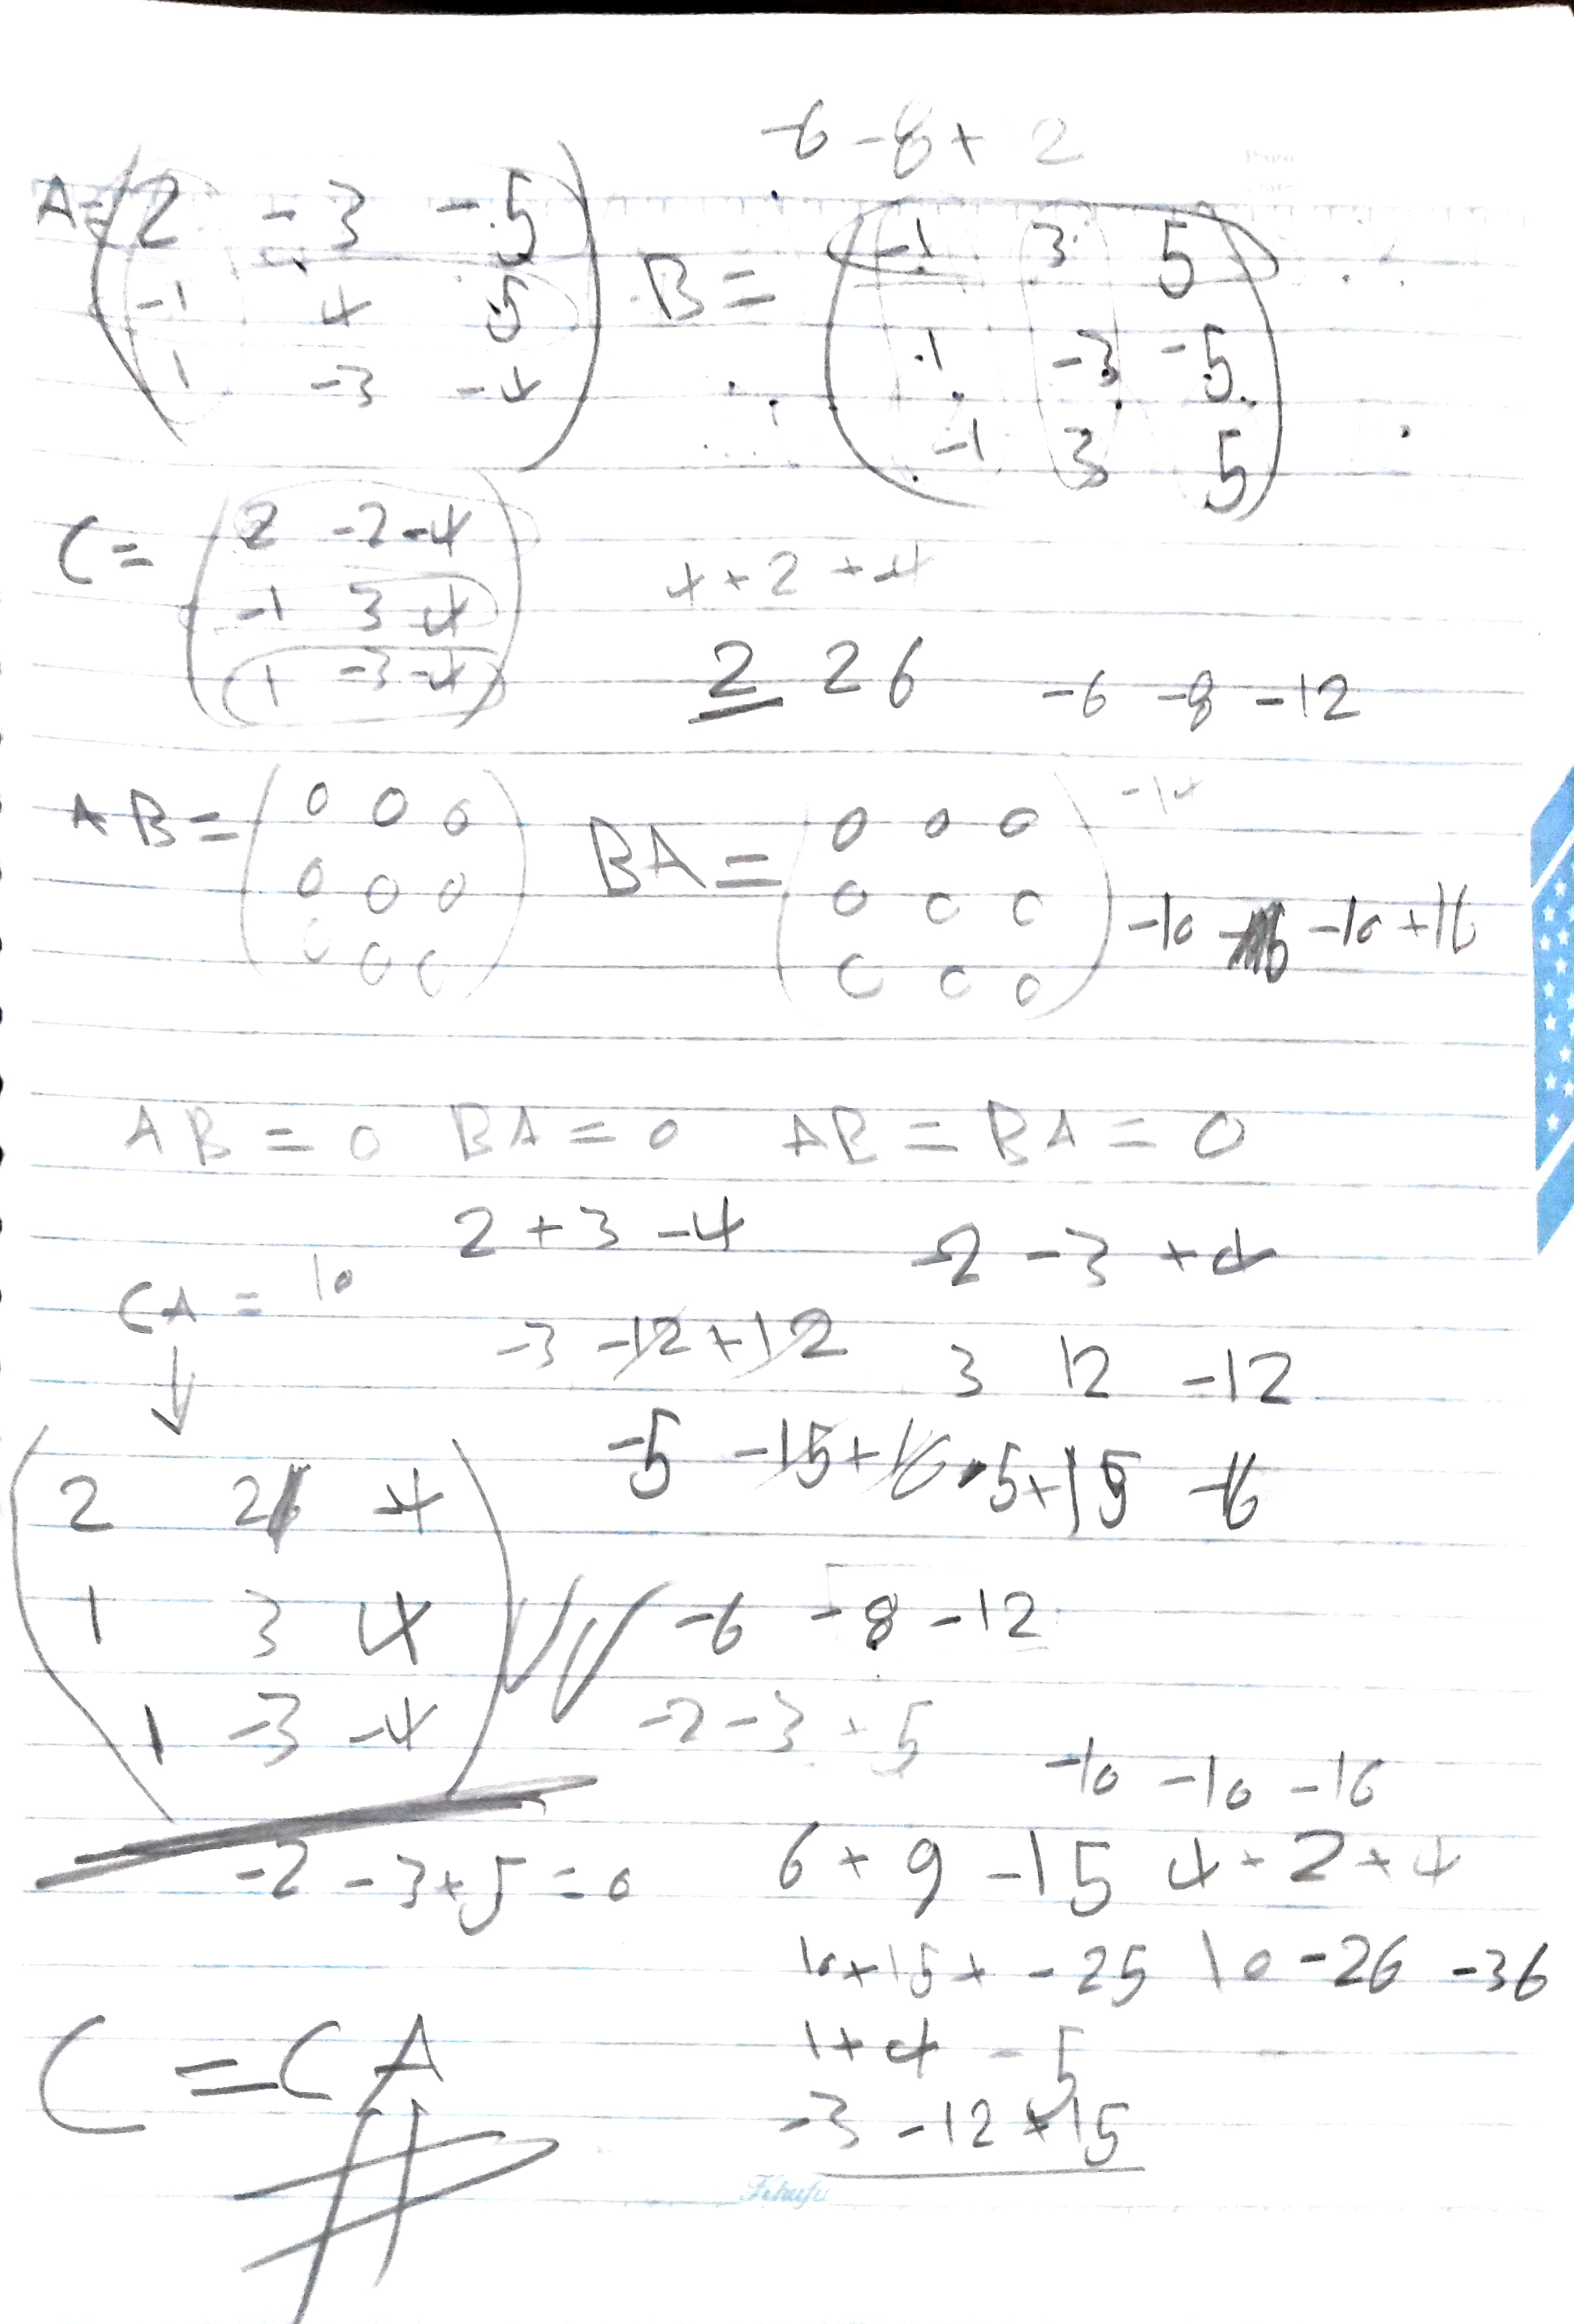 -6 -8 + 2
A = ( 2 -3 -5
-1 4 5
1 -3 -4 )
B = ( -1 3 5
1 -3 -5
-1 3 5 )
C = ( 2 -2 -4
-1 3 4
1 -3 -4 )
4 + 2 + -4
2 26 -6 -8 -12
AB = ( 0 0 0
0 0 0
0 0 0 )
BA = ( 0 0 0
0 0 0
0 0 0 )
-14
-10 -10 +16
AB = 0 BA = 0 AB = BA = 0
2 + 3 -4 -2 -3 +4
CA = 10
-3 -12 +12 3 12 -12
↓
-5 -15 + 16 5 + 15 -16
( 2 2 4
1 3 4
1 -3 -4 )
-6 -8 -12
-2 -3 + 5
-10 -10 -16
-2 -3 + 5 = 0 6 + 9 -15 4 + 2 + 4
10 + 15 + -25 10 -26 -36
1 + 4 - 5
C = CA
-3 -12 + 15
Khufu